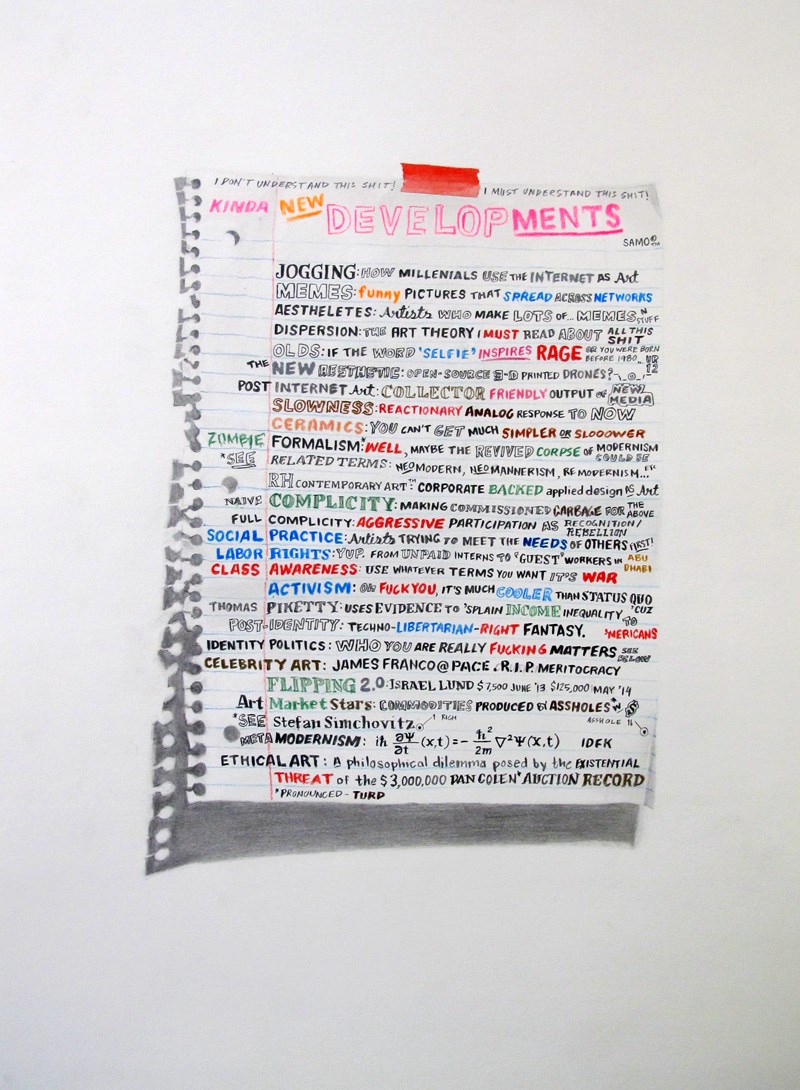 I DON'T UNDERSTAND THIS SHIT! I MUST UNDERSTAND THIS SHIT!
KINDA NEW DEVELOPMENTS
SAMO©™
JOGGING: HOW MILLENIALS USE THE INTERNET AS Art
MEMES: funny PICTURES THAT SPREAD ACROSS NETWORKS
AESTHELETES: Artists WHO MAKE LOTS OF... MEMES 'N STUFF
DISPERSION: THE ART THEORY I MUST READ ABOUT ALL THIS SHIT
OLDS: IF THE WORD 'SELFIE' INSPIRES RAGE OR YOU WERE BORN BEFORE 1980... UR 12
THE NEW AESTHETIC: OPEN-SOURCE 3-D PRINTED DRONES?
POST INTERNET Art: COLLECTOR FRIENDLY OUTPUT OF NEW MEDIA
SLOWNESS: REACTIONARY ANALOG RESPONSE TO NOW
CERAMICS: YOU CAN'T GET MUCH SIMPLER OR SLOOOWER
ZOMBIE FORMALISM:* WELL, MAYBE THE REVIVED CORPSE OF MODERNISM COULD BE
*SEE RELATED TERMS: NEOMODERN, NEOMANNERISM, REMODERNISM... ETC
RH CONTEMPORARY ART™: CORPORATE BACKED applied design AS Art
NAIVE COMPLICITY: MAKING COMMISSIONED GARBAGE FOR THE ABOVE
FULL COMPLICITY: AGGRESSIVE PARTICIPATION AS RECOGNITION/ REBELLION
SOCIAL PRACTICE: Artists TRYING TO MEET THE NEEDS OF OTHERS FIRST!
LABOR RIGHTS: YUP. FROM UNPAID INTERNS TO "GUEST" WORKERS IN ABU DHABI
CLASS AWARENESS: USE WHATEVER TERMS YOU WANT IT'S WAR
ACTIVISM: OH FUCK YOU, IT'S MUCH COOLER THAN STATUS QUO
THOMAS PIKETTY: USES EVIDENCE TO 'SPLAIN INCOME INEQUALITY TO 'MERICANS 'CUZ
POST-IDENTITY: TECHNO-LIBERTARIAN-RIGHT FANTASY.
IDENTITY POLITICS: WHO YOU ARE REALLY FUCKING MATTERS SEE BELOW
CELEBRITY ART: JAMES FRANCO @ PACE. R.I.P. MERITOCRACY
FLIPPING 2.0: ISRAEL LUND $7,500 JUNE '13 $125,000 MAY '14
Art Market Stars: COMMODITIES PRODUCED BY ASSHOLES* $
*SEE Stefan Simchovitz 1 RICH ASSHOLE
META MODERNISM: iħ ∂Ψ/∂t (x,t) = - ħ²/2m ∇²Ψ(x,t) IDFK
ETHICAL ART: A philosophical dilemma posed by the EXISTENTIAL
THREAT of the $3,000,000 DAN COLEN* AUCTION RECORD
*PRONOUNCED - TURD